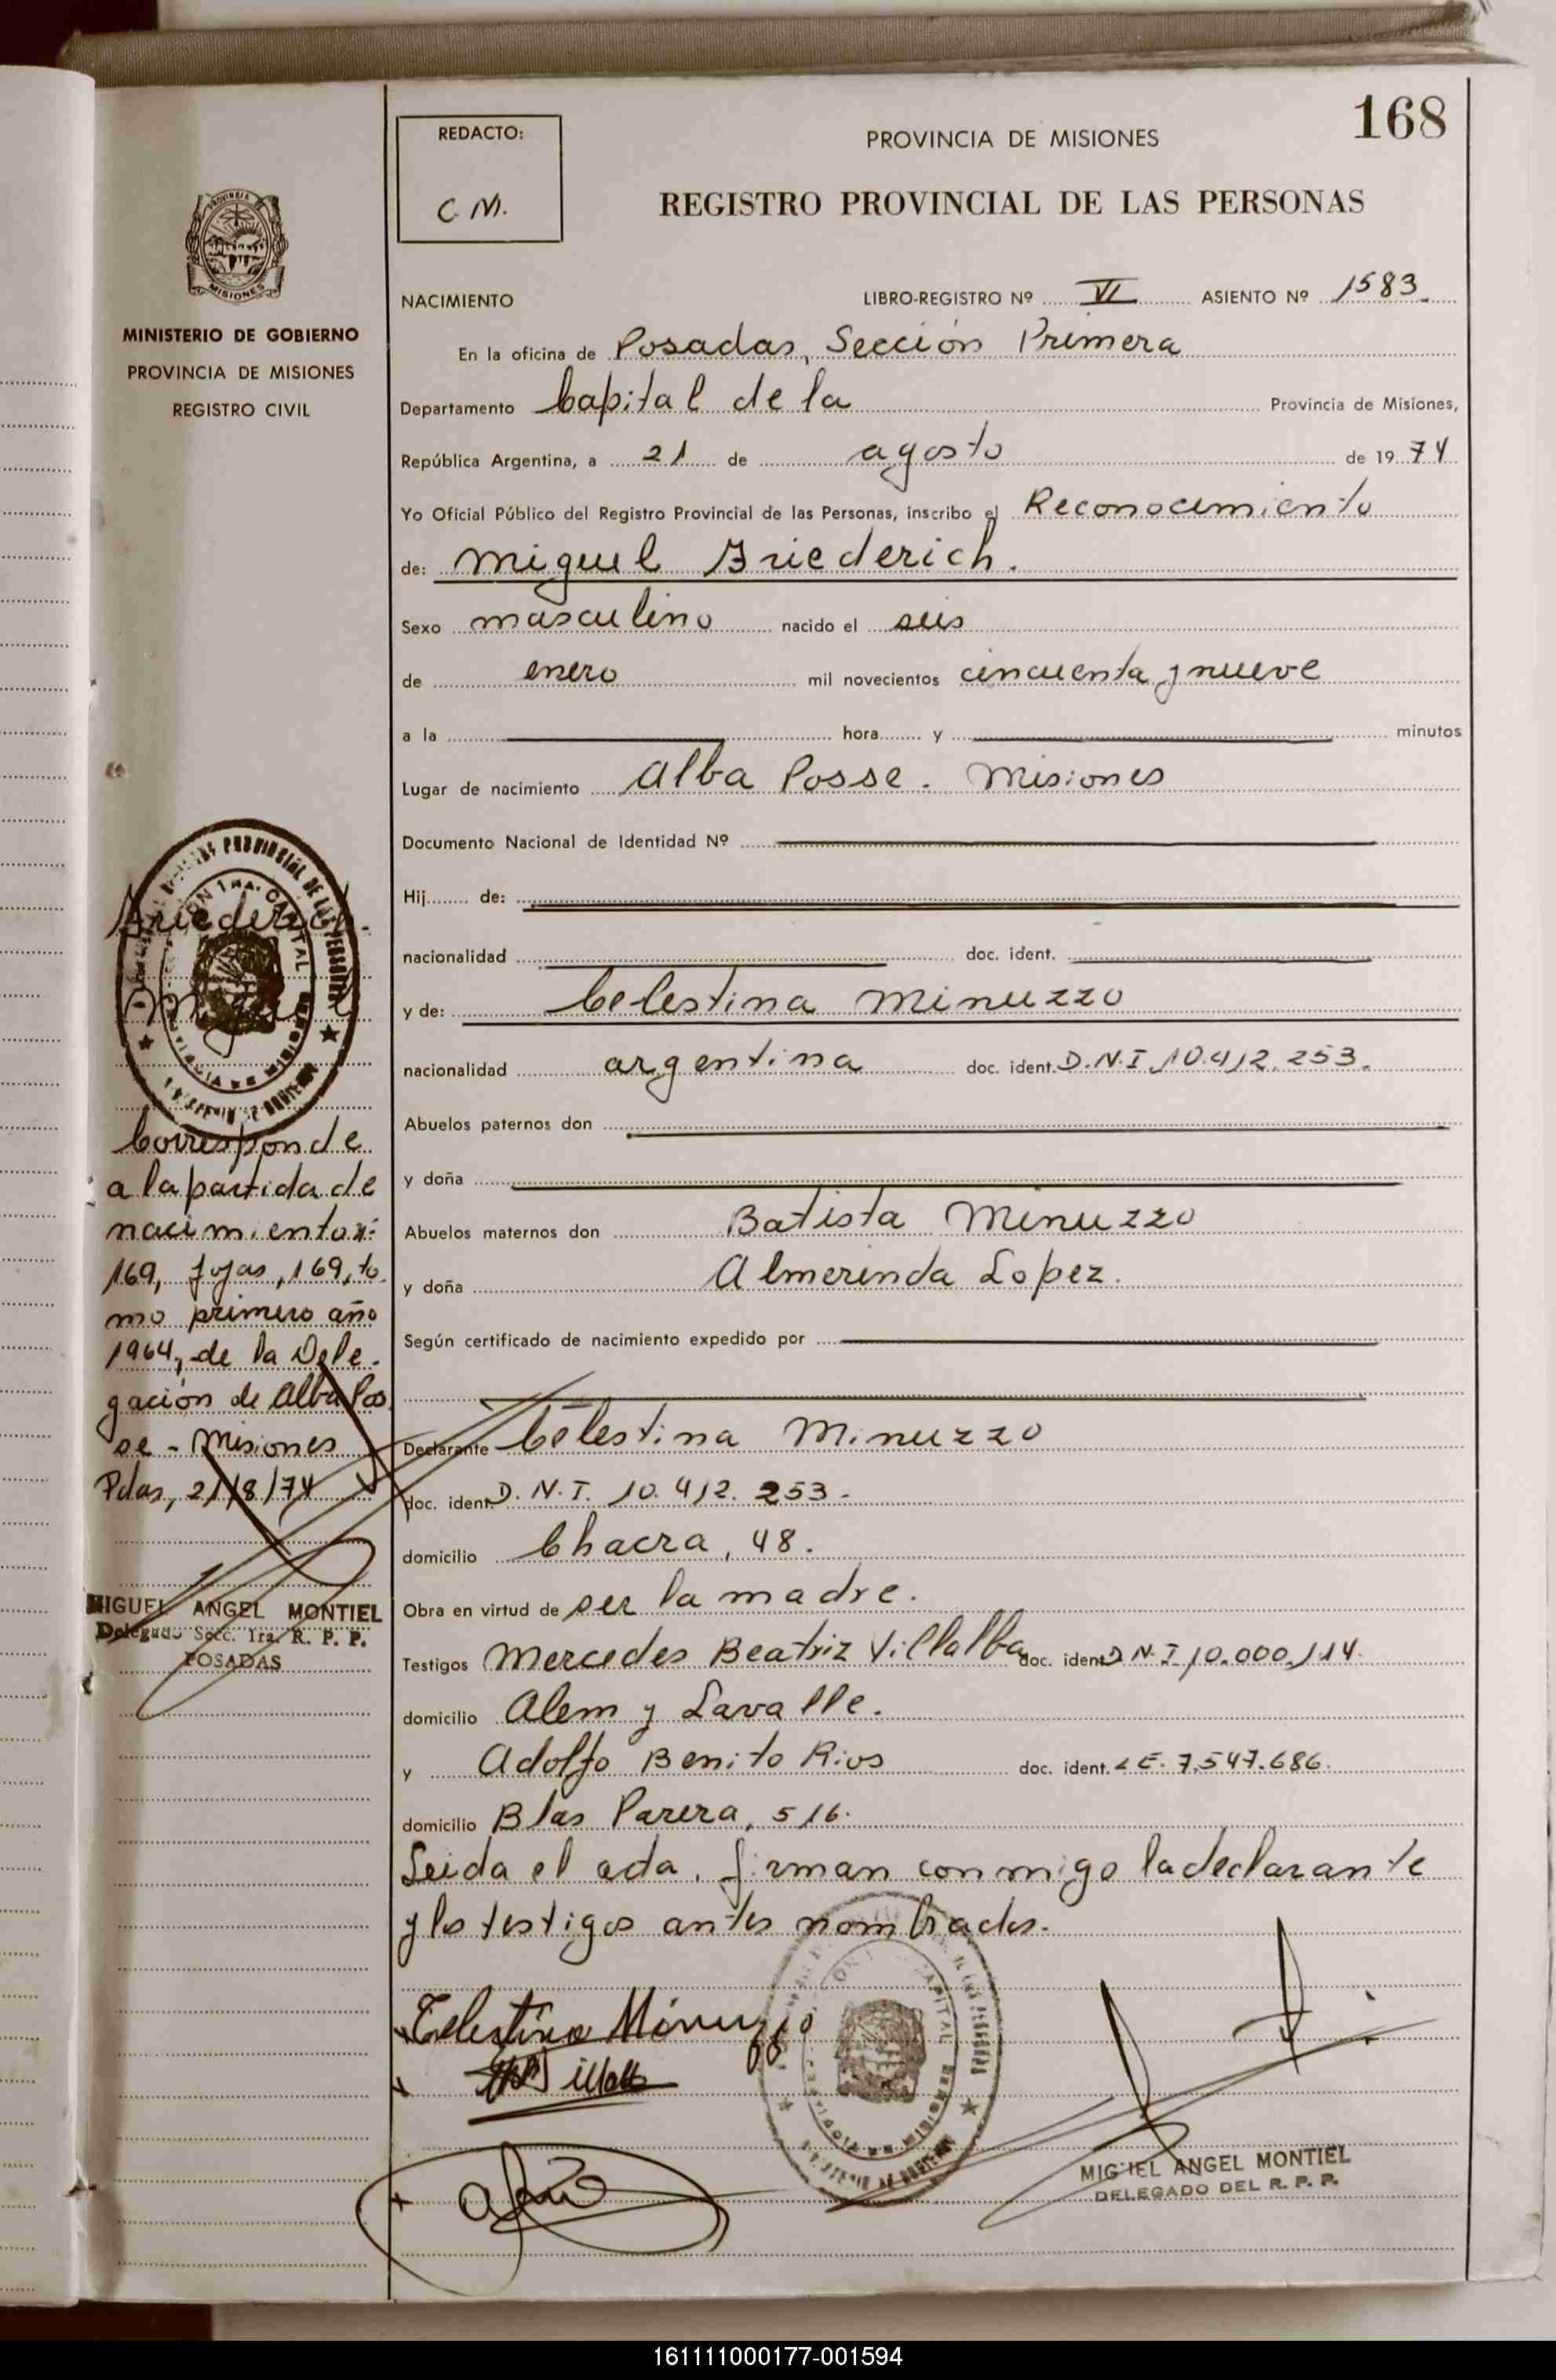 168
REDACTO:
C. M.
PROVINCIA DE MISIONES
REGISTRO PROVINCIAL DE LAS PERSONAS
MISIONES
MINISTERIO DE GOBIERNO
PROVINCIA DE MISIONES
REGISTRO CIVIL
NACIMIENTO LIBRO-REGISTRO Nº VI ASIENTO Nº 1583
En la oficina de Posadas, Sección Primera
Departamento Capital de la Provincia de Misiones,
República Argentina, a 21 de agosto de 1974
Yo Oficial Público del Registro Provincial de las Personas, inscribo el Reconocimiento
de: Miguel Briederich.
Sexo masculino nacido el seis
de enero mil novecientos cincuenta y nueve
a la hora y minutos
Lugar de nacimiento Alba Posse. Misiones
Documento Nacional de Identidad Nº
Hij de:
nacionalidad doc. ident.
y de: Celestina Minuzzo
nacionalidad argentina doc. ident. D.N.I 10.412.253.
Abuelos paternos don
y doña
Abuelos maternos don Batista Minuzzo
y doña Almerinda Lopez.
Según certificado de nacimiento expedido por
Declarante Celestina Minuzzo
doc. ident. D.N.I. 10.412.253-
domicilio Chacra, 48.
Obra en virtud de ser la madre.
Testigos Mercedes Beatriz Villalba doc. ident. D.N.I 10.000.114.
domicilio Alem y Lavalle.
y Adolfo Benito Rios doc. ident. L E. 7.547.686.
domicilio Blas Parera, 516.
Leida el acta, firman conmigo la declarante
y los testigos antes nombrados.
Celestina Minuzzo
MIGUEL ANGEL MONTIEL
DELEGADO DEL R. P. P.
Briederich.
Miguel
Corresponde
a la partida de
nacimiento nº
169, fojas, 169, to
mo primero año
1964, de la Dele-
gación de Alba Pos
se - Misiones
Pdas, 21/8/74
MIGUEL ANGEL MONTIEL
Delegado Secc. 1ra. R. P. P.
POSADAS
161111000177-001594